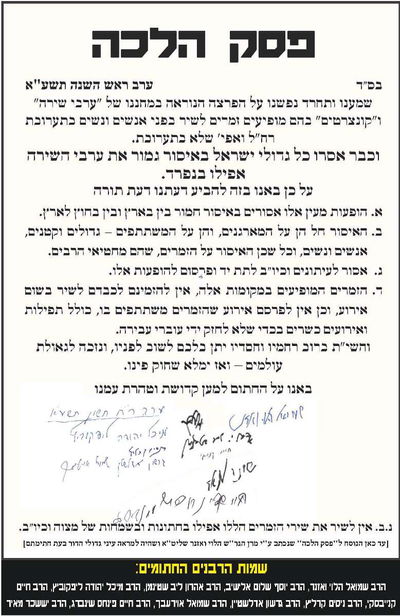 פסק הלכה
בס"ד
ערב ראש השנה תשע"א
שמענו ותחרד נפשנו על הפרצה הנוראה במחננו של "ערבי שירה"
ו"קונצרטים" בהם מופיעים זמרים לשיר בפני אנשים ונשים בתערובת
רח"ל ואפי' שלא בתערובת.
וכבר אסרו כל גדולי ישראל באיסור גמור את ערבי השירה
אפילו בנפרד.
על כן באנו בזה להביע דעתנו דעת תורה
א. הופעות מעין אלו אסורים באיסור חמור בין בארץ ובין בחוץ לארץ.
ב. האיסור חל הן על המארגנים, והן על המשתתפים – גדולים וקטנים,
אנשים ונשים, וכל שכן האיסור על הזמרים, שהם מחטיאי הרבים.
ג. אסור לעיתונים וכיו"ב לתת יד ופרסום להופעות אלו.
ד. הזמרים המופיעים במקומות אלה, אין להזמינם לכבדם לשיר בשום
אירוע, וכן אין לפרסם אירוע שהזמרים משתתפים בו, כולל תפילות
ואירועים כשרים בכדי שלא לחזק ידי עוברי עבירה.
והשי"ת ברוב רחמיו וחסדיו יתן בלבם לשוב לפניו, ונזכה לגאולת
עולמים – ואז ימלא שחוק פינו.
באנו על החתום למען קדושת וטהרת עמנו
ערב ר"ח חשון תשע"א
מיכל יהודה ליפקוביץ
נ.ב. אין לשיר את שירי הזמרים הללו אפילו בחתונות ובשמחות של מצוה וכיו"ב.
[עד כאן הנוסח ל"פסק הלכה" שנכתב ע"י מרן הגר"ש הלוי ואזנר שליט"א ושהיה למראה עיני גדולי הדור בעת חתימתם]
שמות הרבנים החתומים:
הרב שמואל הלוי ואזנר, הרב יוסף שלום אלישיב, הרב אהרון ליב שטינמן, הרב מיכל יהודה ליפקוביץ, הרב חיים
קנייבסקי, הרב ניסים קרליץ, הרב גרשון אדלשטיין, הרב שמואל אויערבך, הרב חיים פינחס שינברג, הרב יששכר מאיר